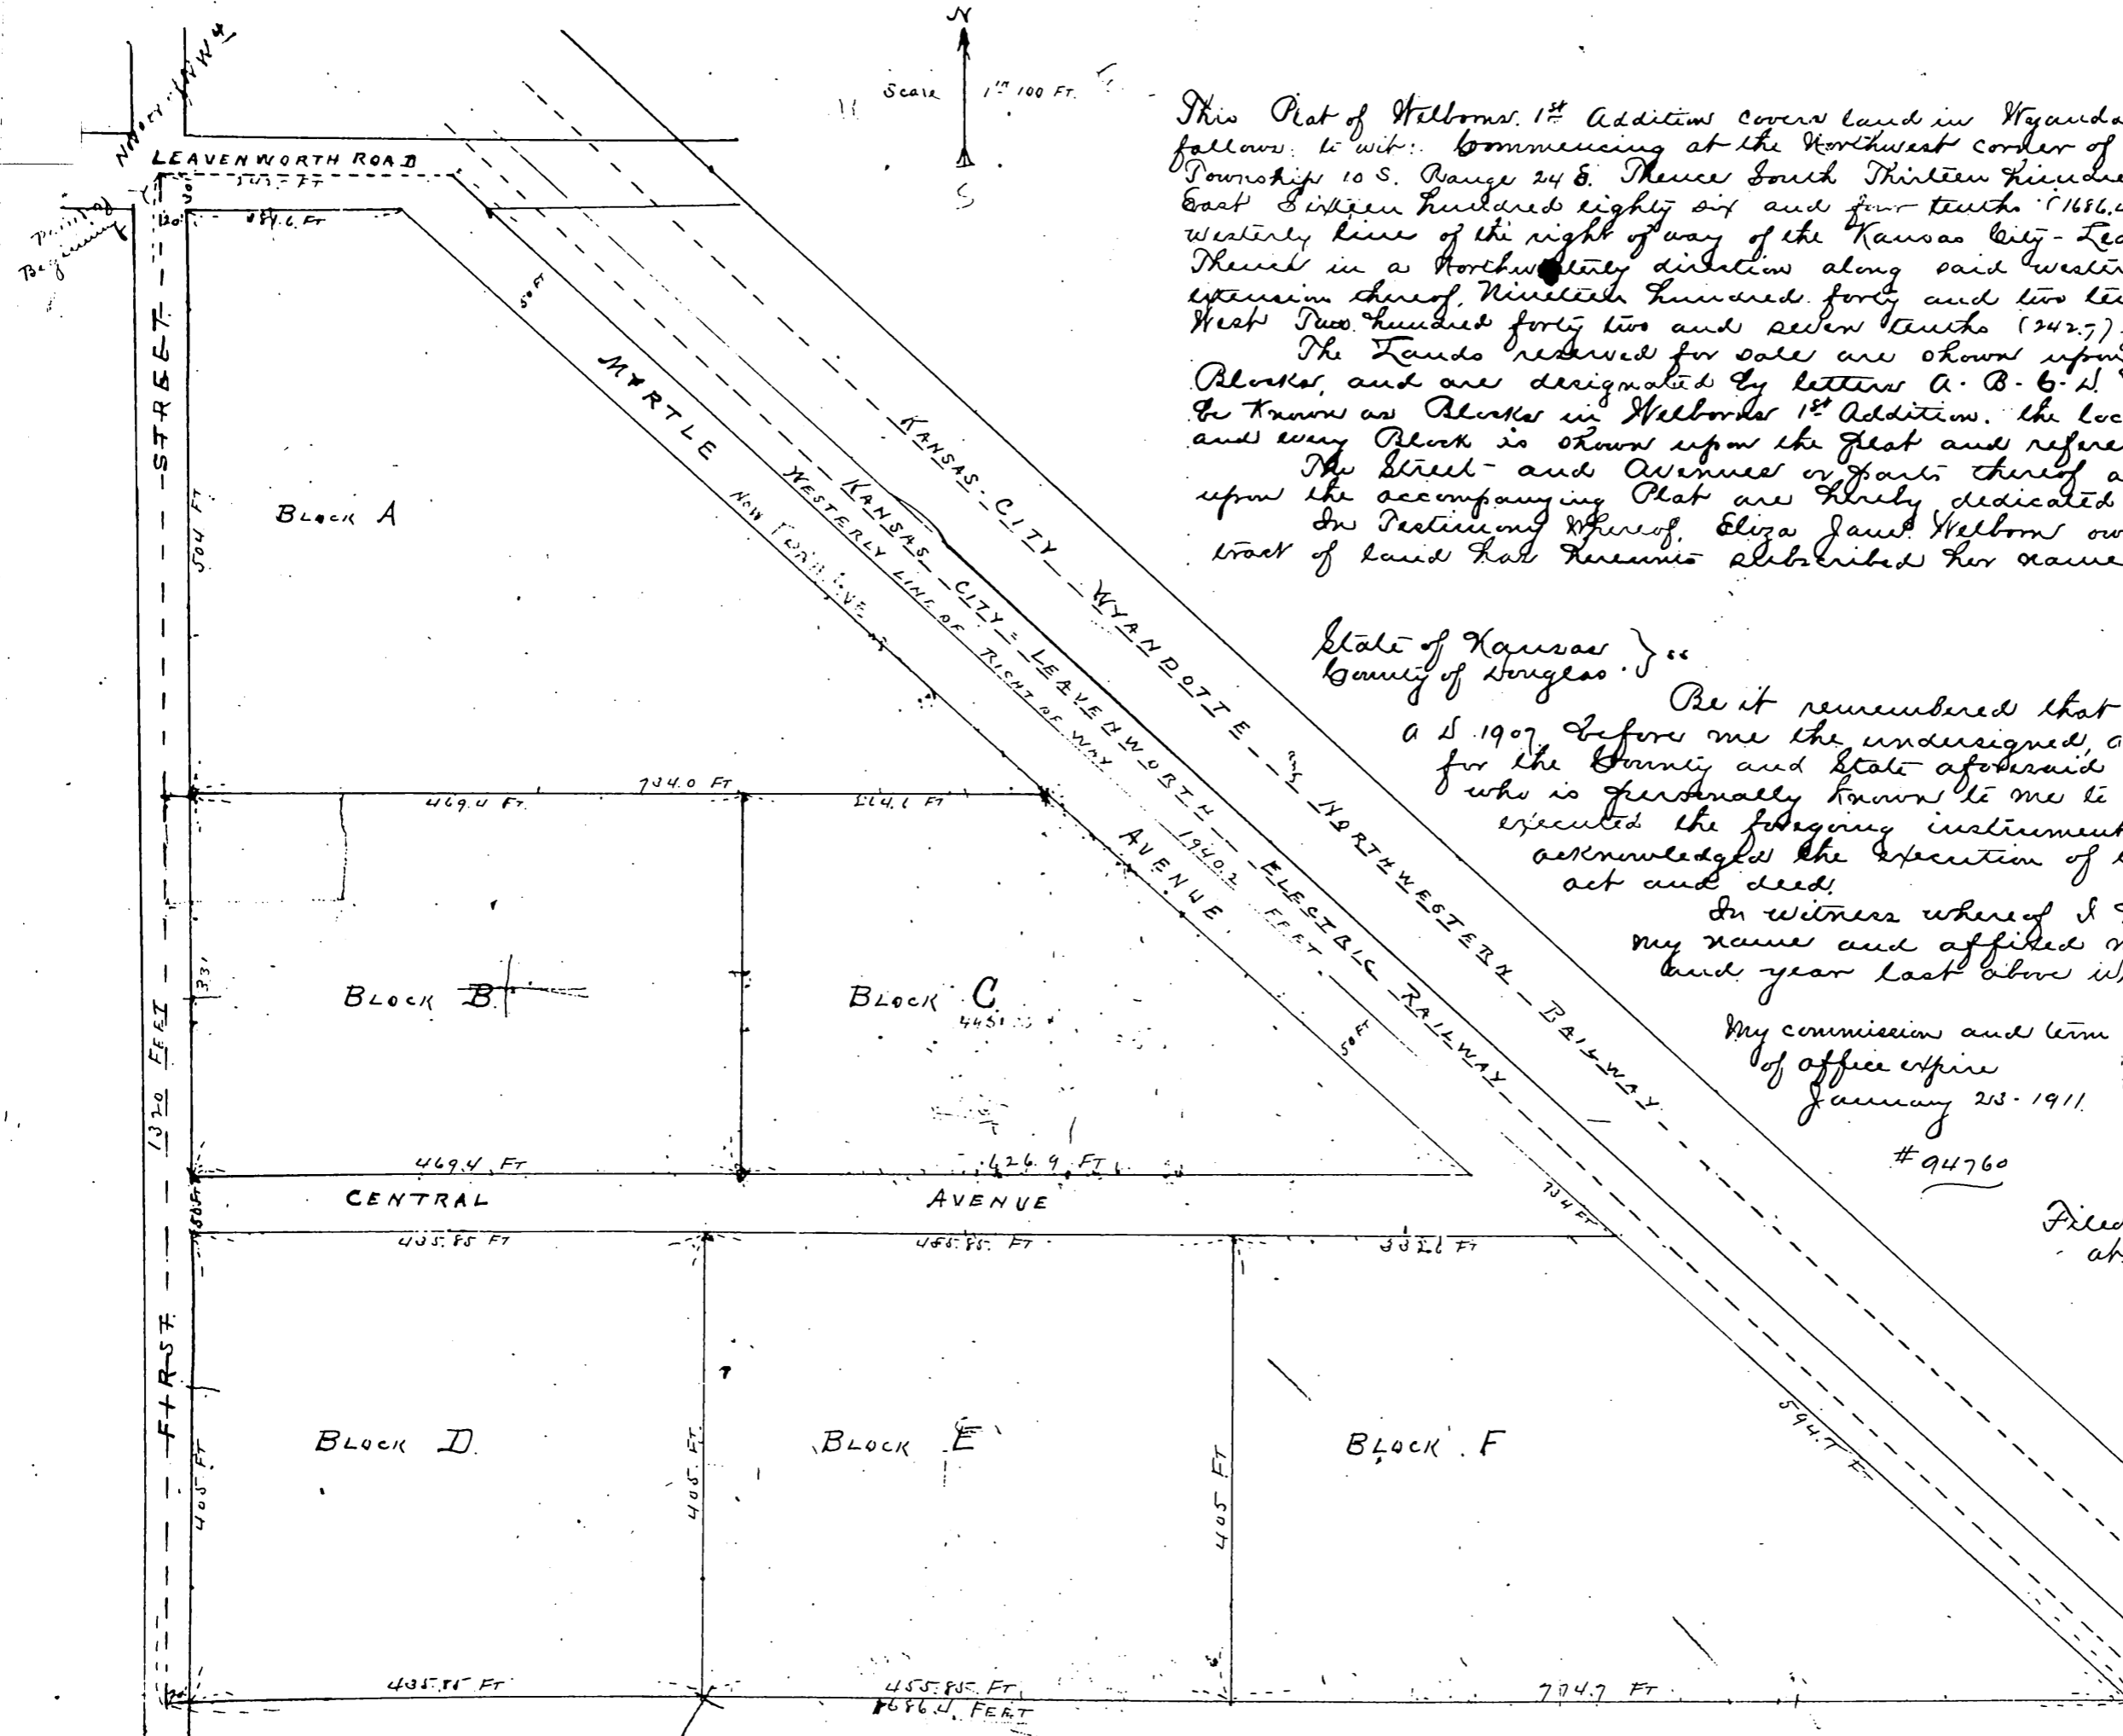 N
Scale 1in 100 FT.
S
LEAVENWORTH ROAD
30
20
Point of
Beginning
50 FT
STREET
504 FT
BLOCK A
MYRTLE
NOW
KANSAS-CITY-WYANDOTTE and NORTHWESTERN-RAILWAY
KANSAS CITY-LEAVENWORTH-ELECTRIC RAILWAY
WESTERLY LINE OF RIGHT OF WAY 1940.2 FEET
AVENUE
734.0 FT
469.4 FT.
331
BLOCK B.
BLOCK C
50 FT
1320 FEET
469.4 FT
626.9 FT
CENTRAL AVENUE
50 FT
435.85 FT
455.85 FT
734 FT
FIRST
405 FT
BLOCK D.
405 FT.
BLOCK E
405 FT
BLOCK F
594.7 FT
435.85 FT
455.85 FT.
774.7 FT.
1686.4 FEET
This Plat of Welborns 1st Addition covers land in Wyando
follows: to wit: Commencing at the Northwest corner of
Township 10 S. Range 24 E. Thence South Thirteen hundre
East Sixteen hundred eighty six and four tenths (1686.4
westerly line of the right of way of the Kansas City-Lea
Thence in a Northwesterly direction along said wester
extension thereof, Nineteen hundred forty and two ten
West Two hundred forty two and seven tenths (242.7)
The Lands reserved for sale are shown upon
Blocks, and are designated by letters A-B-C-D.
be Known as Blocks in Welborns 1st Addition. the loc
and every Block is shown upon the plat and refere
The Street and Avenues or parts thereof a
upon the accompanying Plat are hereby dedicated
In Testimony Whereof, Eliza Jane Welborn ow
tract of land has hereunto subscribed her name
State of Kansas
County of Douglas
Be it remembered that
A D. 1907, before me the undersigned, a
for the County and State aforesaid
who is personally known to me to
executed the foregoing instrument
acknowledged the execution of
act and deed.
In witness whereof I
my name and affixed m
and year last above w
My commission and term
of office expire
January 23-1911.
#94760
Filed
at